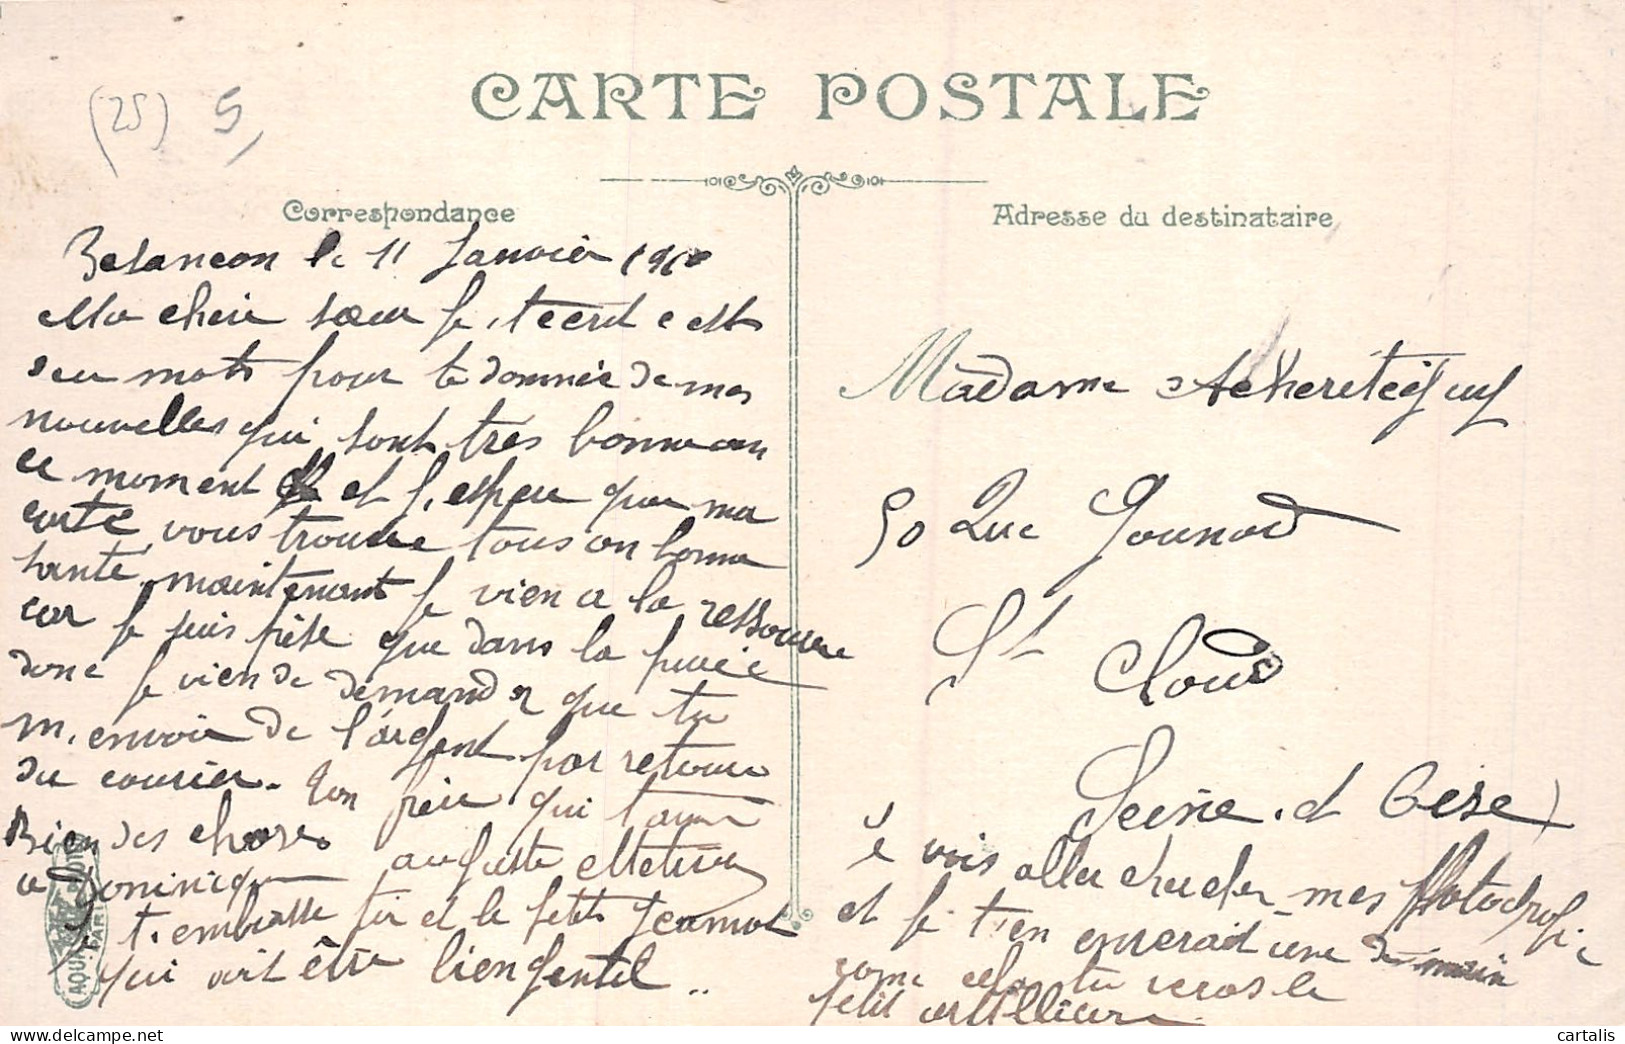 (25) 5
CARTE POSTALE
Correspondance
Besancon le 11 Janvier 1910
Ma cheire sœur je t'ecrit c est
seu mots pour te donnée de mes
nouvelles qui sont très bonne en
ce moment et j'espere que ma
carte vous trouve tous en bonne
santé maintenant je vien a la ressource
car je suis que dans la purée
donc je vien de demander que tu
m'envoie de l'argent par retour
du courier. Ton frère qui t'aime
Bien des choses auguste
a Dominique
t'embrasse toi et le petit Jeannot
qui doit être bien gentil ..
AQUA PHOTO
PARIS
Adresse du destinataire
Madame
50 Rue Gounod
St Cloud
Seine et Oise
Je vais aller chercher mes Photografie
et je t'en enverait une demain
come cela tu veras le
petit artilleur
cartalis